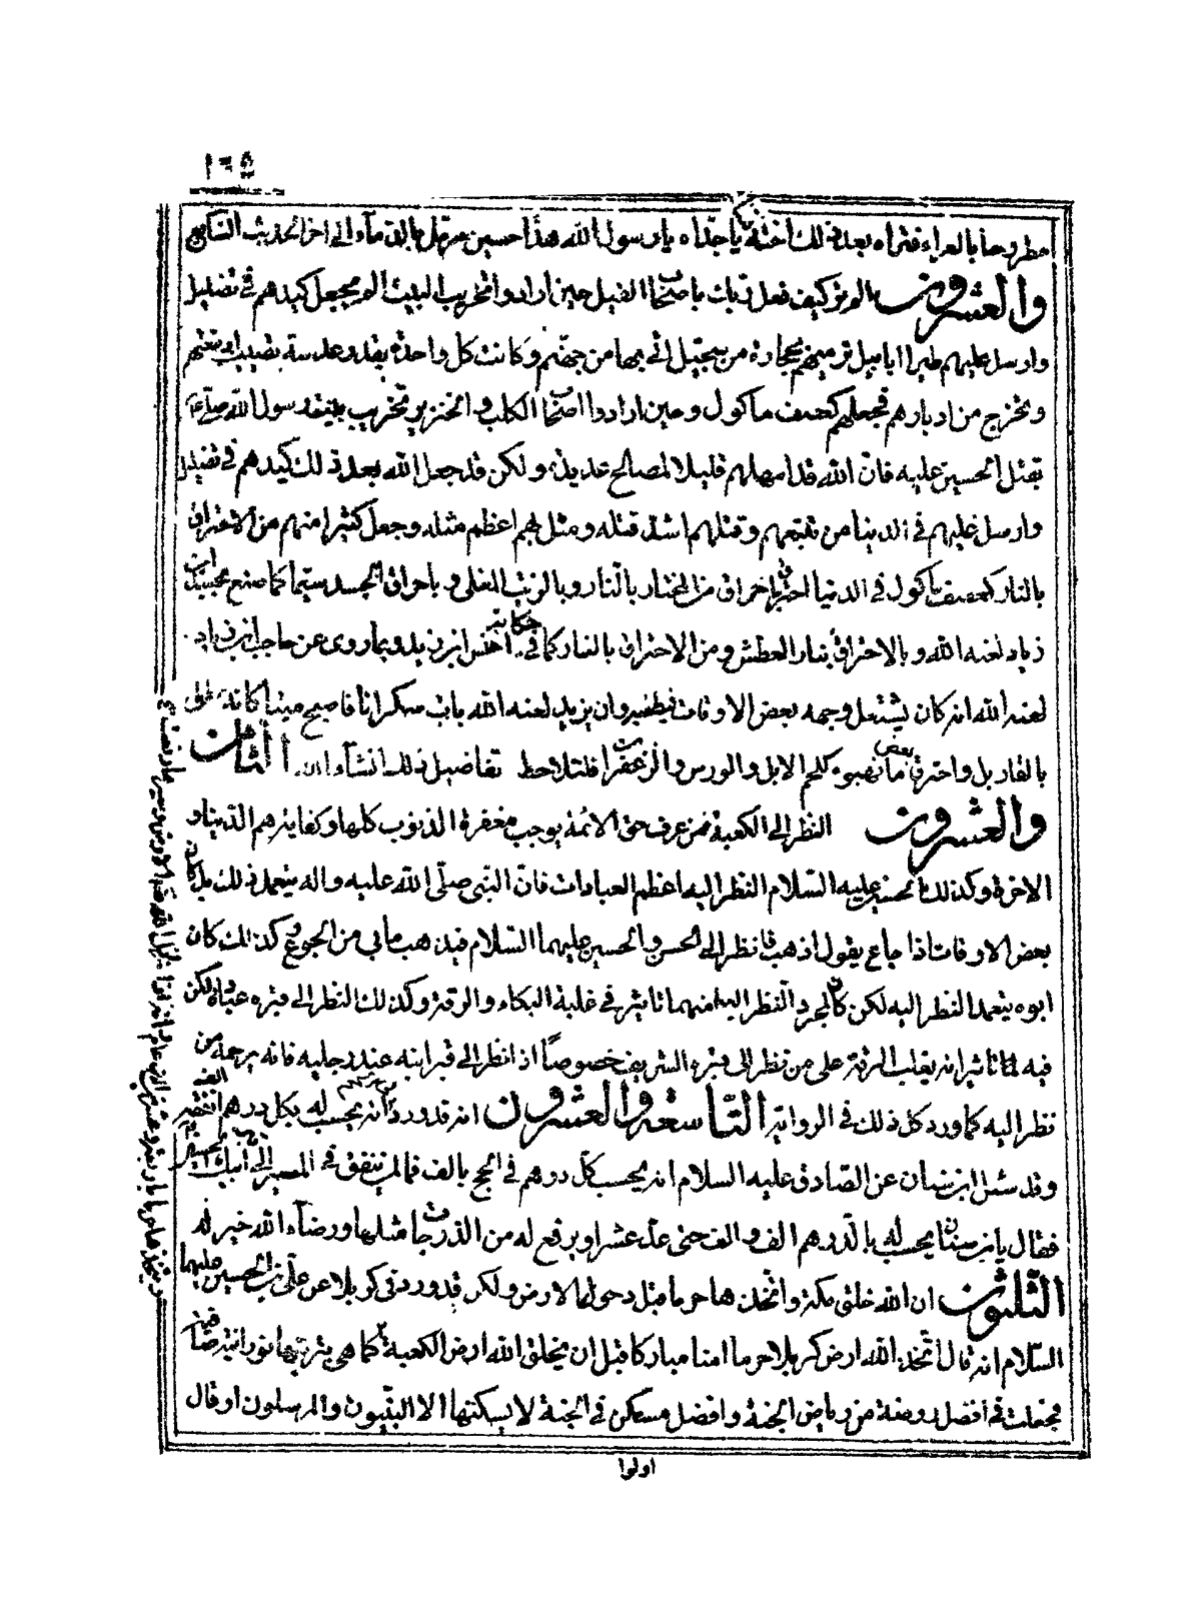 ١٦٥
مطروحا بالعراء فتراه بعد ذلك اخته ياجداه يارسول الله هذا حسين مرمل بالدماء الى اخر الحديث السابع
والعشرون الم تر كيف فعل ربك باصحاب الفيل حين ارادوا تخريب البيت الم يجعل كيدهم في تضليل
وارسل عليهم طيرا ابابيل ترميهم بحجارة من سجيل اتى بها من جهنم وكانت كل واحدة بقدر عدسة تصيب
وتخرج من ادبارهم فجعلهم كعصف ماكول وحين ارادوا اصحاب الكلب والخنزير تخريب بيت رسول الله
بقتل الحسين عليه فان الله قد امهلهم قليلا لمصالح عديدة ولكن قد جعل الله بعد ذلك كيدهم في تضليل
وارسل عليهم في الدنيا من تتبعهم وقتلهم اشد قتله ومثل بهم اعظم مثله وجعل كثيرا منهم من الاحتراق
بالنار كعصف ماكول في الدنيا باحراق من المختار بالنار وبالزيت المغلى و باحراق الجسد سيما كما صنع
زياد لعنه الله وبالاحتراق بنار العطش ومن الاحتراق بالنار كما في حكاية اخنس ابن زيد وبماروى عن حاجب ابن زياد
لعنه الله انه كان يشتعل وجهه بعض الاوقات وان يزيد لعنه الله بات سكرانا فاصبح ميتا كانه
بالقار بل واحترق بعض مانهبوه كلحم الابل والورس والزعفران فلتلاحظ تفاصيل ذلك انشاء الله الثامن
والعشرون النظر الى الكعبة فمن عرف حق الائمة يوجب مغفرة الذنوب كلها وكفاية هم الدنيا و
الاخرة وكذلك عليه السلام النظر اليه اعظم العبادات فان النبى صلى الله عليه واله يتعمد ذلك بل كان
بعض الاوقات اذا جاع يقول اذهب فانظر الى الحسن والحسين عليهما السلام فيذهب مابي من الجوع وكذلك كان
ابوه يتعمد النظر اليه لكن كان لمجرد النظر اليه منهما تاثير في غلبة البكاء والرقة وكذلك النظر الى قبره عبادة لكن
فيه تاثير انه يغلب الرقة على من نظر الى قبره الشريف خصوصا اذا نظر الى قبر ابنه عند رجليه فانه يرحمه من
نظر اليه كما ورد كل ذلك في الرواية التاسعة والعشرون انه قد ورد انه يحسب له بكل درهم انفقه الف
وقد سئل ابن سنان عن الصادق عليه السلام انه يحسب كل درهم في الحج بالف فما لمن ينفق في المسير الى ابيك الحسين
فقال يابن سنان يحسب له بالدرهم الف والف حتى عد عشرا ويرفع له من الدرجات مثلها ورضاء الله خير له
الثلثون ان الله خلق مكة واتخذها حرما قبل دحو الارض ولكن قد ورد في كربلا عن على بن الحسين عليهما
السلام انه قال اتخذ الله ارض كربلا حرما امنا مباركا قبل ان يخلق الله ارض الكعبة كما هي بتربتها نورانية صافية
فجعلت في افضل روضة من رياض الجنة وافضل مسكن في الجنة لا يسكنها الا النبيون والمرسلون او قال
اولوا